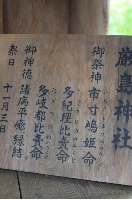 厳島神社
御祭神 市寸嶋姫命
多紀理比賣命
多岐都比賣命
御神徳 諸病平癒 縁結
祭日 十一月三日